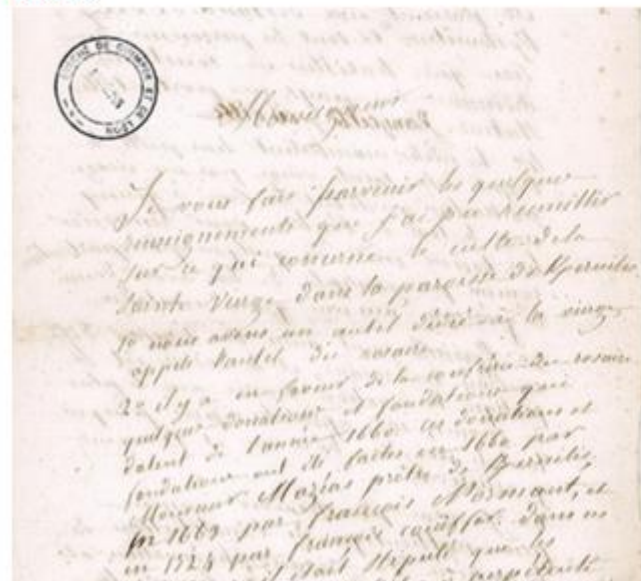 ÉVÊCHÉ DE QUIMPER ET DE LÉON
Monsieur
Je vous fais parvenir les quelques
renseignements que j'ai pu recueillir
sur ce qui concerne le culte de la
Sainte Vierge dans la paroisse de
1º nous avons un autel dédié à la vierge
appelé l'autel du rosaire
2º il y a en faveur de la confrérie du rosaire
quelques donations et fondations qui
datent de l'année 1660 ces donations et
fondations ont été faites en 1660 par
Monsieur prêtre de
en 1669 par françois et
en 1724 par françois dans ces
était stipulé que les
perpétuité